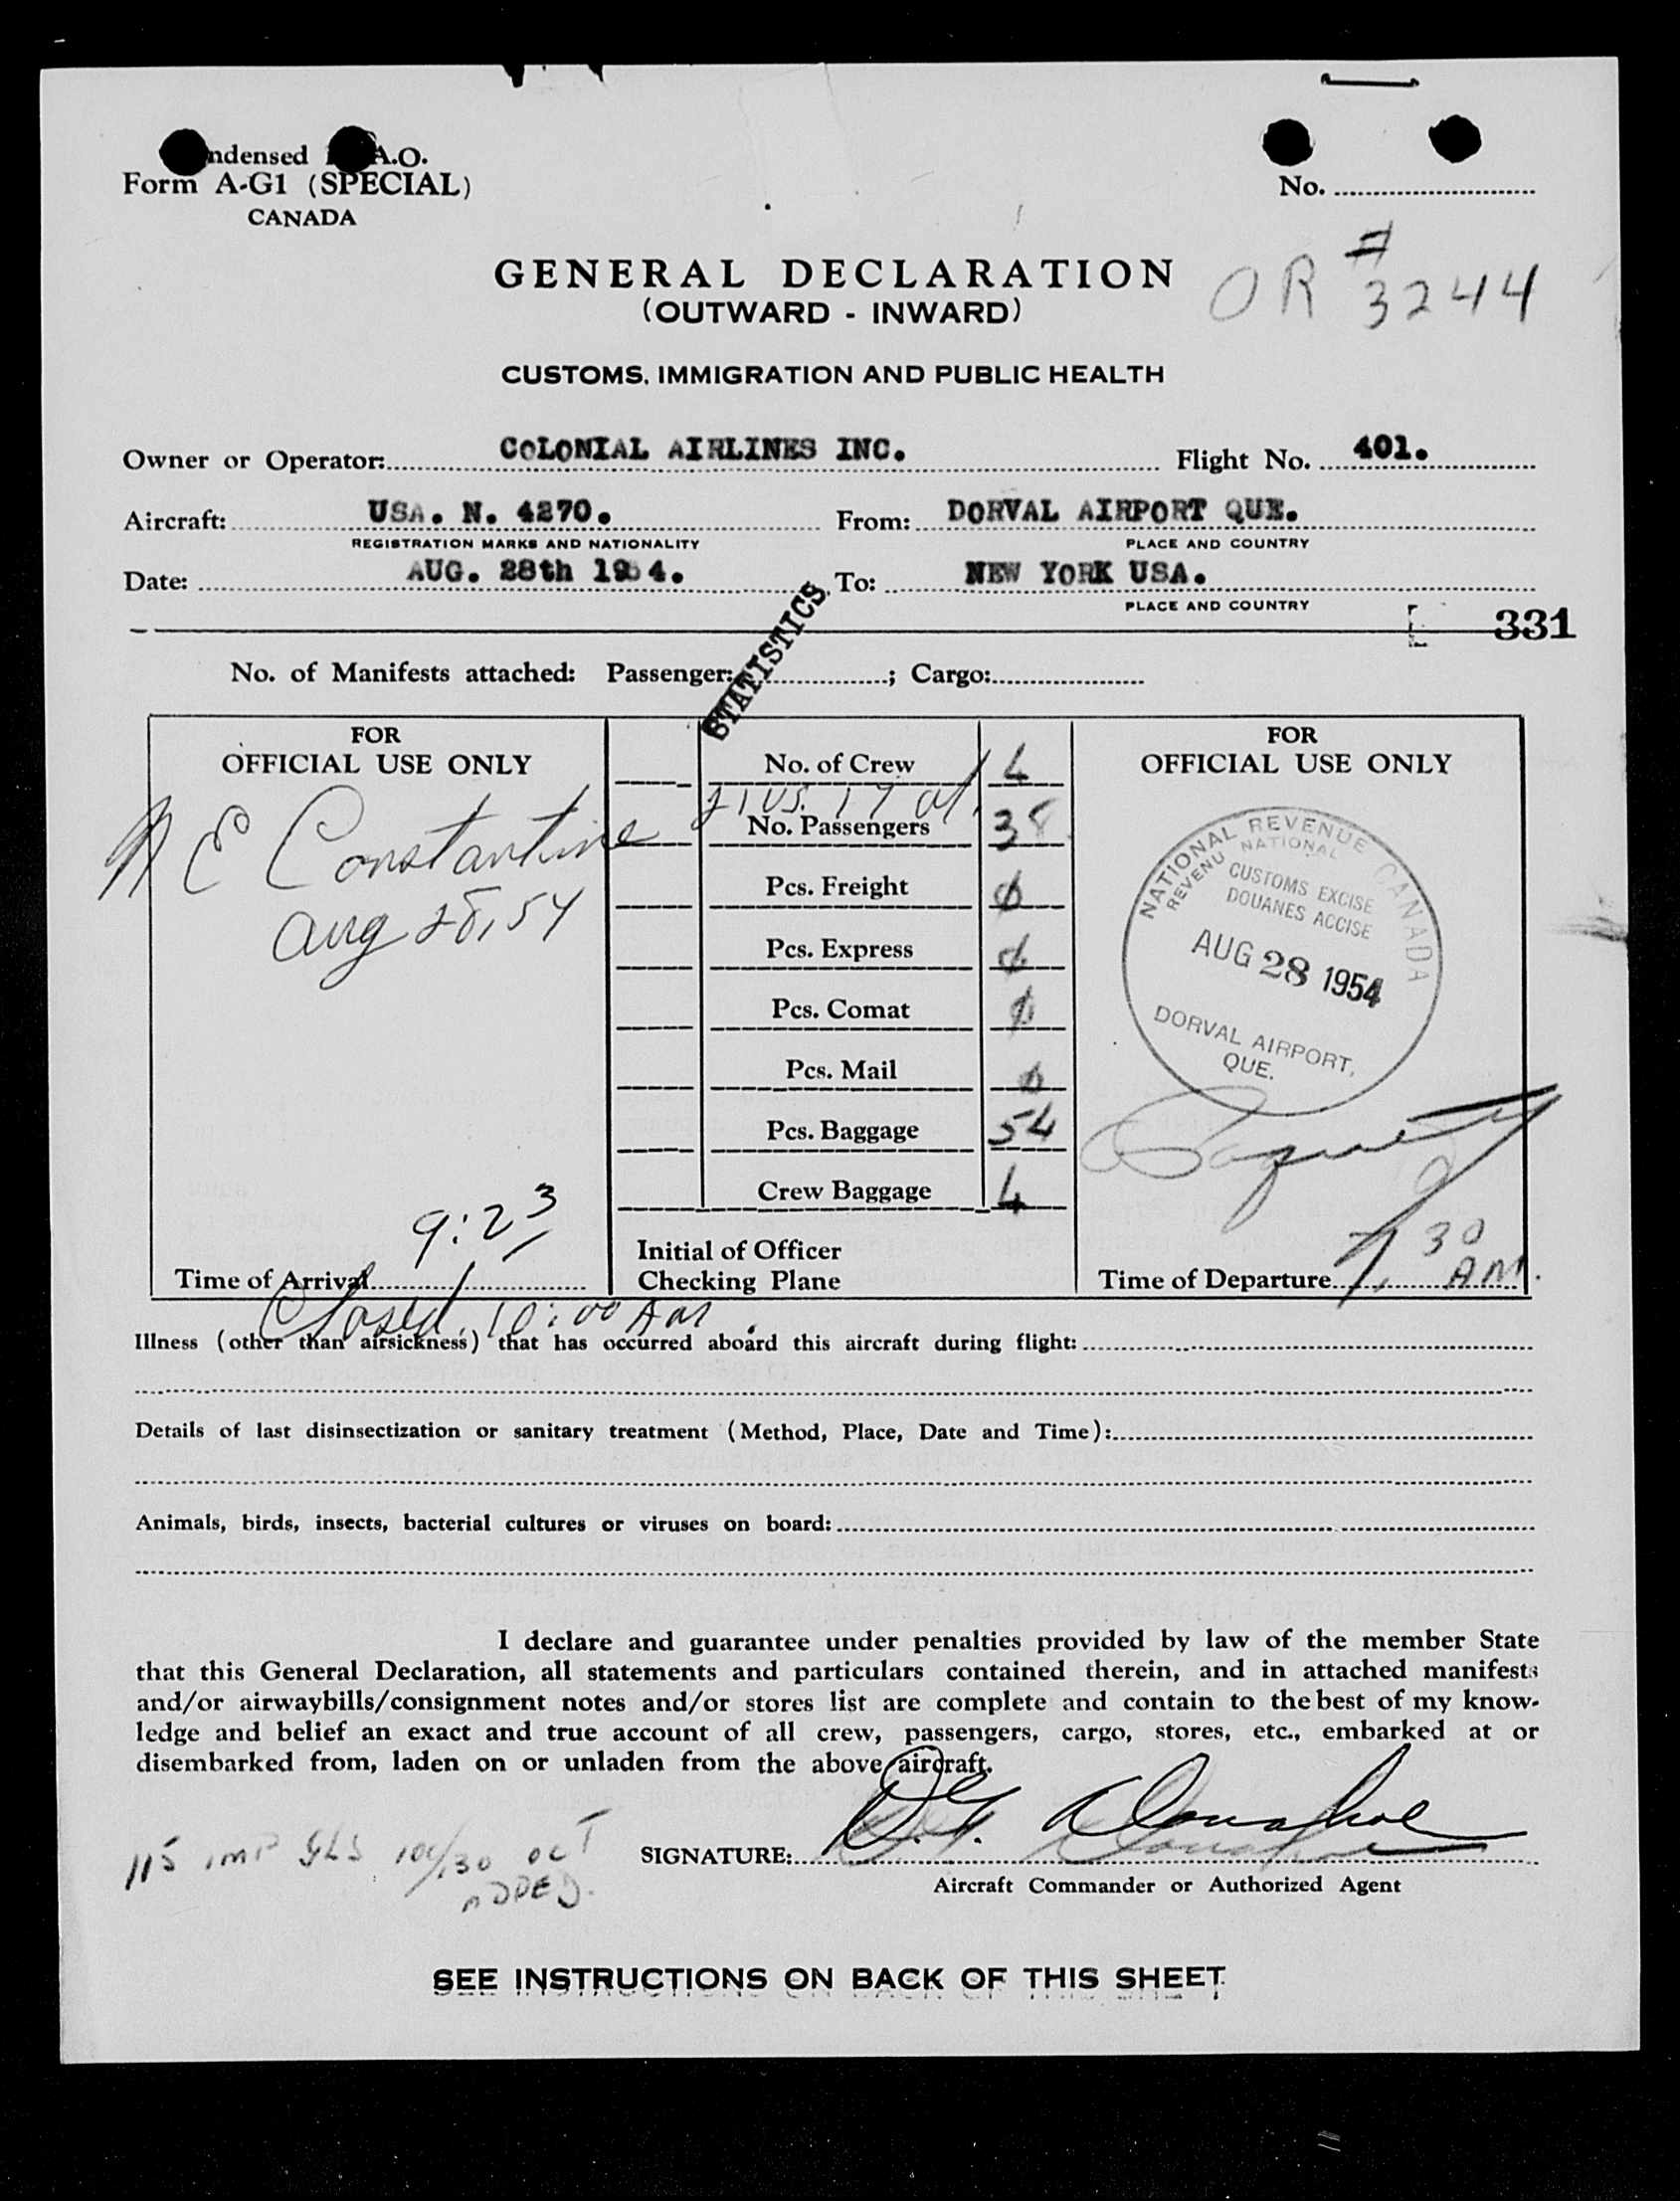 ndensed A.O.
Form A-G1 (SPECIAL)
CANADA
No.
OR # 3244
GENERAL DECLARATION
(OUTWARD - INWARD)
CUSTOMS, IMMIGRATION AND PUBLIC HEALTH
Owner or Operator: COLONIAL AIRLINES INC. Flight No. 401.
Aircraft: USA. N. 4270. From: DORVAL AIRPORT QUE.
REGISTRATION MARKS AND NATIONALITY PLACE AND COUNTRY
Date: AUG. 28th 1954. To: NEW YORK USA.
PLACE AND COUNTRY
331
STATISTICS
No. of Manifests attached: Passenger: ; Cargo:
FOR
OFFICIAL USE ONLY
N E Constantine
Aug 28, 54
9:23
Time of Arrival
Closed. 10:00 AM
No. of Crew 4
21 US. 17 al.
No. Passengers 38
Pcs. Freight ø
Pcs. Express ø
Pcs. Comat ø
Pcs. Mail ø
Pcs. Baggage 54
Crew Baggage 4
Initial of Officer
Checking Plane
FOR
OFFICIAL USE ONLY
NATIONAL REVENUE CANADA
REVENU NATIONAL
CUSTOMS EXCISE
DOUANES ACCISE
AUG 28 1954
DORVAL AIRPORT,
QUE.
7,30
Time of Departure AM.
Illness (other than airsickness) that has occurred aboard this aircraft during flight:
Details of last disinsectization or sanitary treatment (Method, Place, Date and Time):
Animals, birds, insects, bacterial cultures or viruses on board:
I declare and guarantee under penalties provided by law of the member State
that this General Declaration, all statements and particulars contained therein, and in attached manifests
and/or airwaybills/consignment notes and/or stores list are complete and contain to the best of my know-
ledge and belief an exact and true account of all crew, passengers, cargo, stores, etc., embarked at or
disembarked from, laden on or unladen from the above aircraft.
115 IMP GLS 100/130 OCT
ADDED.
SIGNATURE: D.G. Donahoe
Aircraft Commander or Authorized Agent
SEE INSTRUCTIONS ON BACK OF THIS SHEET